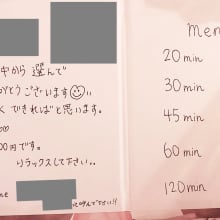 中から選んで
がとうございます
くできればと思います。
00円です。
リラックスして下さい..
me
に呼んで下さい!!
Men
20 min
30 min
45 min
60 min
120 min